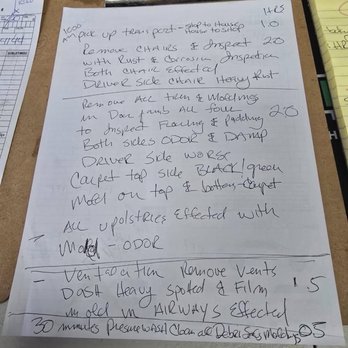 HRS
pick up transport - Shop to House 1.0
House to Shop
Remove CHAIRS & Inspect 2.0
with Rust & Corrosion Inspection
Both CHAIR Effected
DRIVER SIDE CHAIR Heavy Rust
Remove All trim & Moldings
in Door jambs All four 2.0
to Inspect Flooring & Padding
Both sides ODOR & DAMP
DRIVER Side WORSE
Carpet top side BLACK/green
Mold on top & bottom Carpet
- All upolstries Effected with
Mold - ODOR
- Ventalation Remove Vents
DASH Heavy Spotted & Film 5
mold in AIRWAYS Effected
30 minutes Pressure wash Clean all Debris Moldings 05